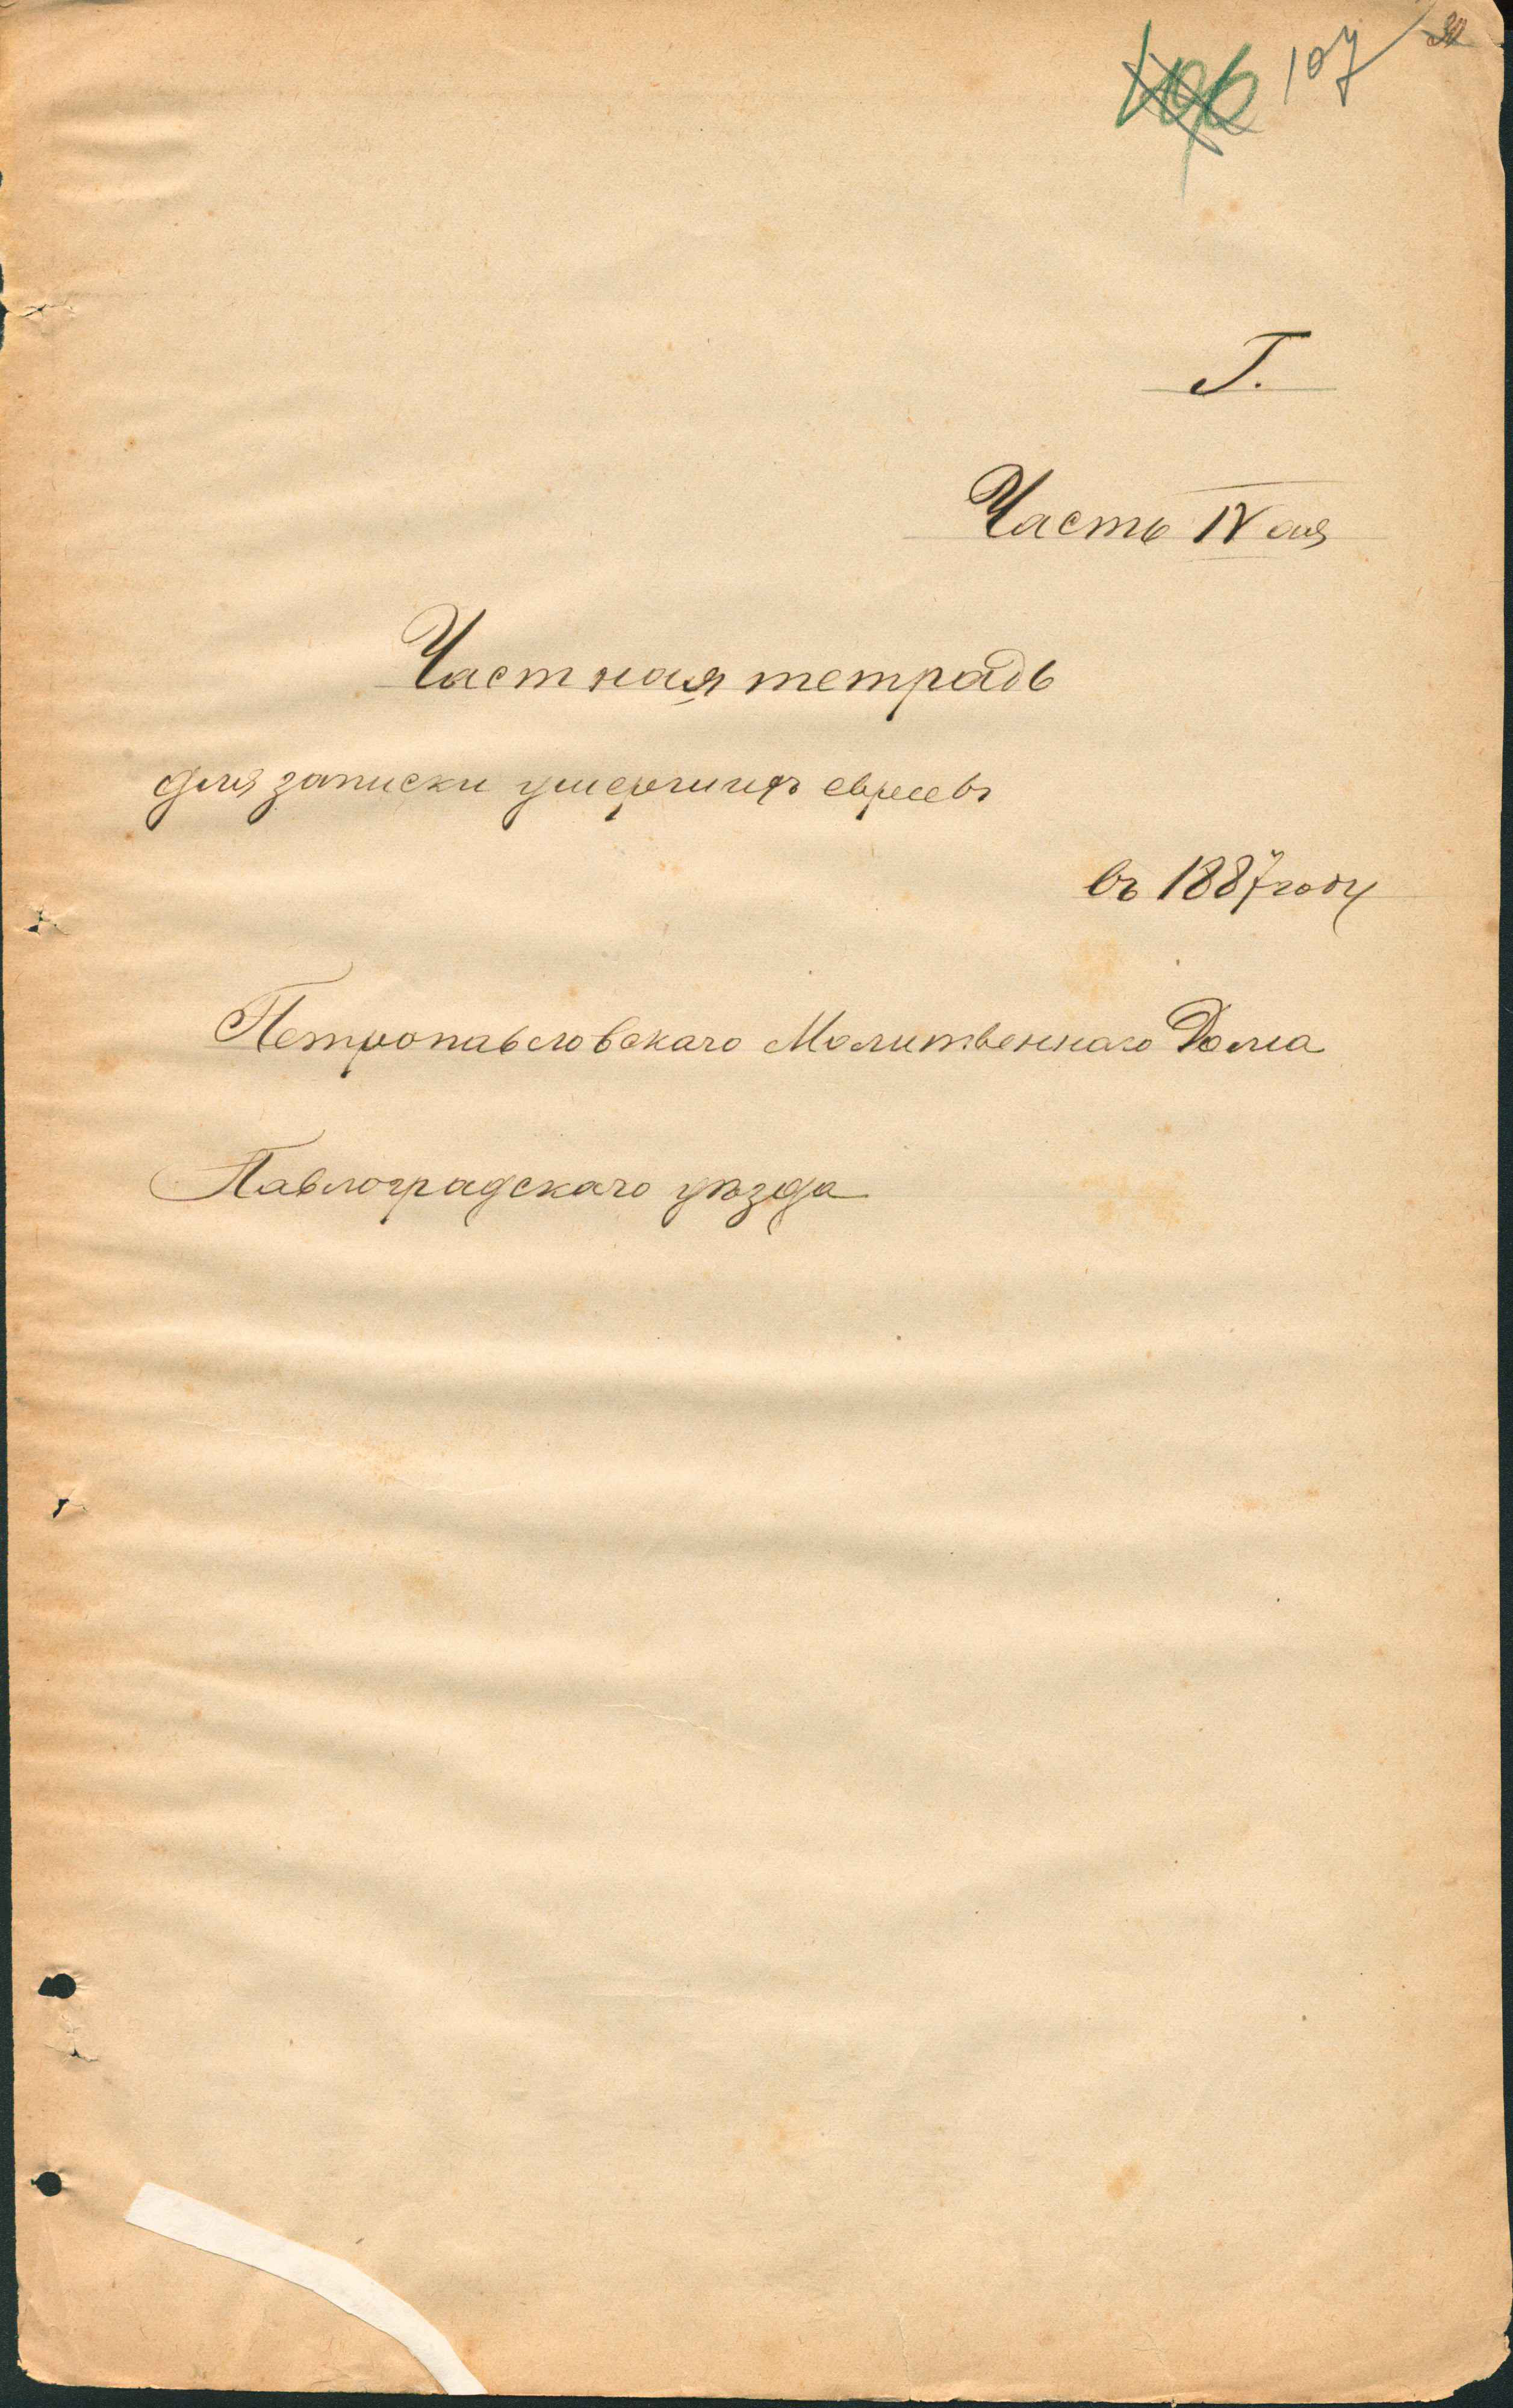 107
Г.
Часть IV ая
Частная тетрадь
для записки умерших евреевъ
въ 1887 году
Петропавловскаго Молитвеннаго Дома
Павлоградскаго уѣзда